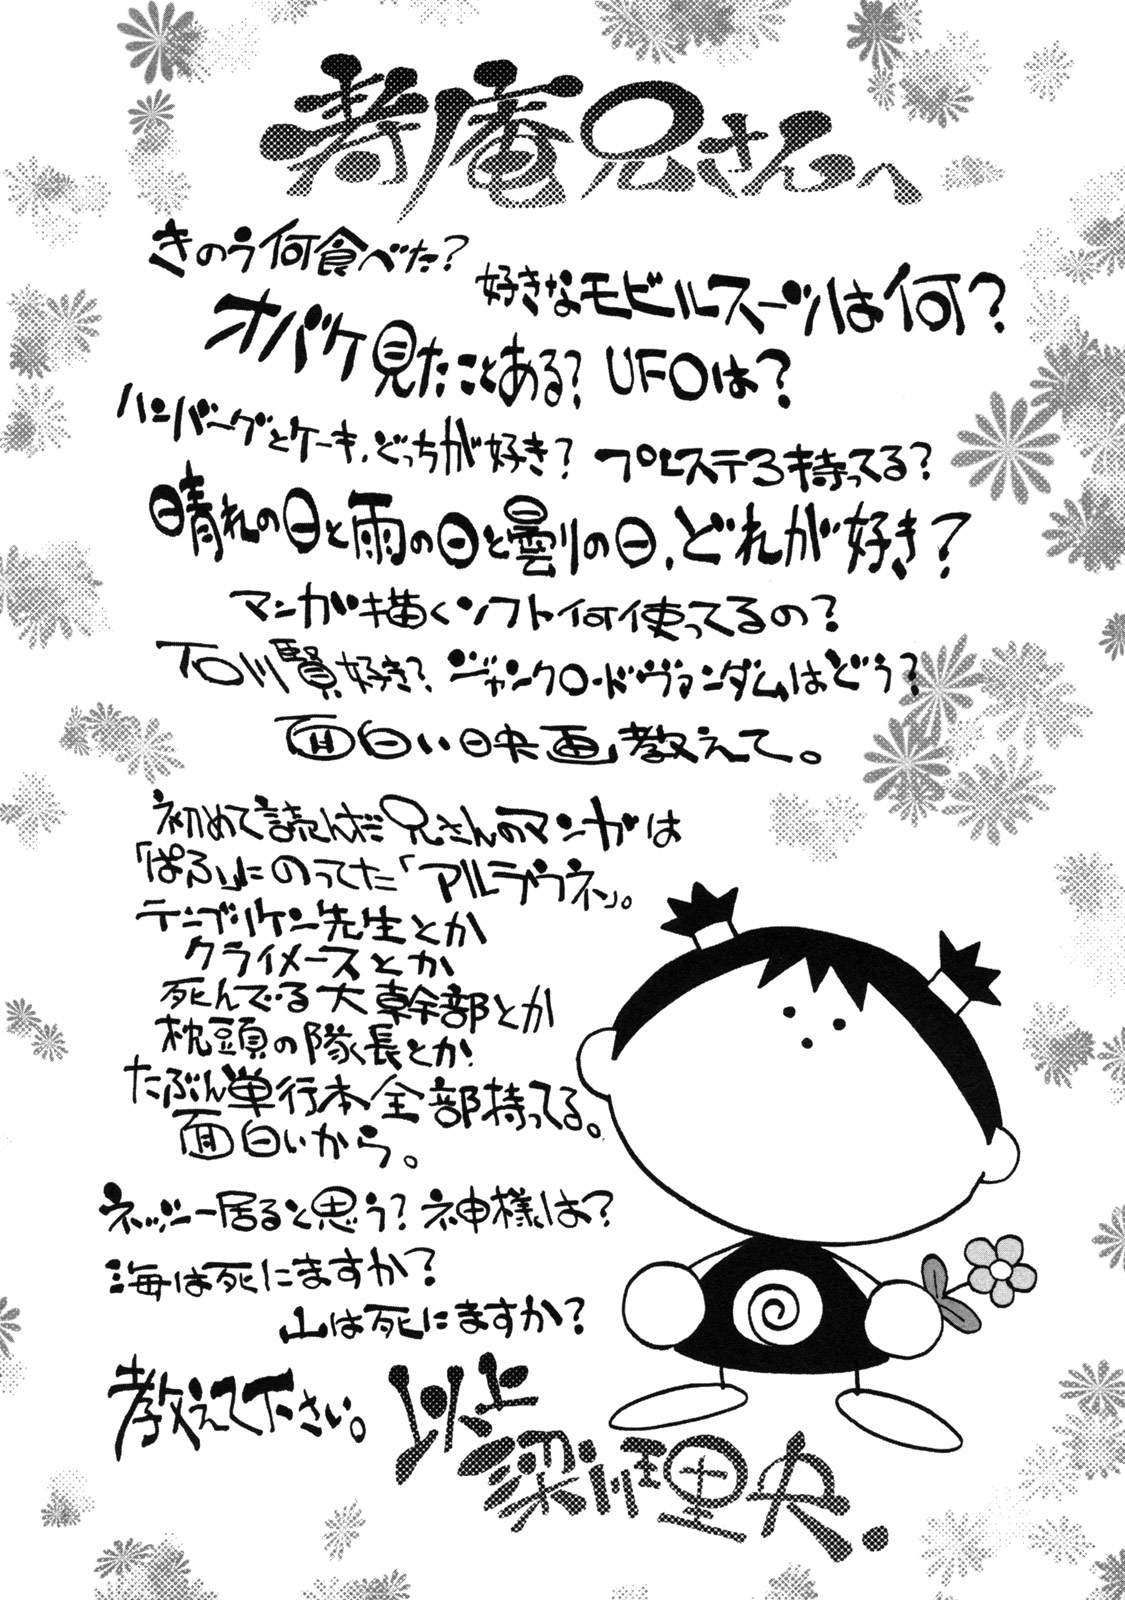 寿庵兄さんへ
きのう何食べた？
好きなモビルスーツは何？
オバケ見たことある？ UFOは？
ハンバーグとケーキ、どっちが好き？ プレステ3持ってる？
晴れの日と雨の日と曇りの日、どれが好き？
マンガ描くソフト何使ってるの？
石川賢好き？ ジャンクロード・ヴァンダムはどう？
面白い映画教えて。
初めて読んだ兄さんのマンガは
「ぱふ」にのってた「アルラウネ」。
テンプリケン先生とか
クライメースとか
死んでる大幹部とか
枕頭の隊長とか
たぶん単行本全部持ってる。
面白いから。
ネッシー居ると思う？ 神様は？
海は死にますか？
山は死にますか？
教えて下さい。
以上
梁川理央.